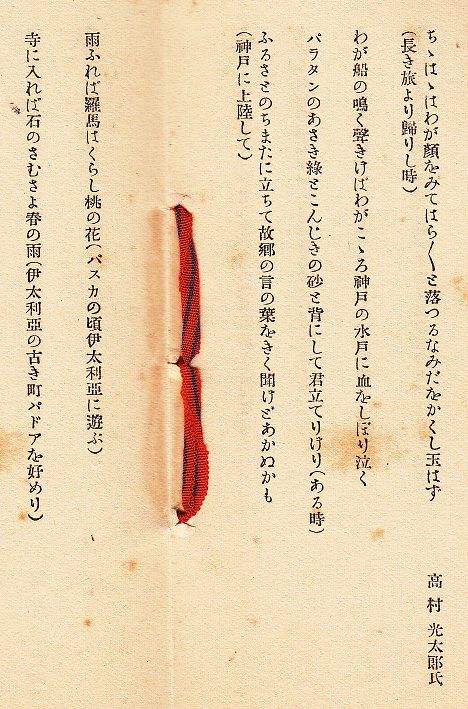 ちゝはゝはわが顔をみてはら〱と落つるなみだをかくし玉はず
(長き旅より歸りし時)
わが船の鳴く聲きけばわがこゝろ神戸の水戸に血をしぼり泣く
パラタンのあさき綠とこんじきの砂と背にして君立てりけり(ある時)
ふるさとのちまたに立ちて故郷の言の葉をきく聞けどあかぬかも
(神戸に上陸して)
高村光太郎氏
雨ふれば羅馬はくらし桃の花(パスカの頃伊太利亞に遊ぶ)
寺に入れば石のさむさよ春の雨(伊太利亞の古き町パドアを好めり)